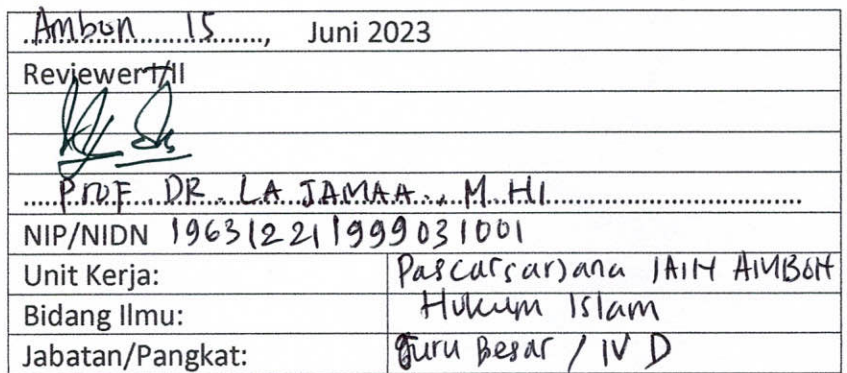 Ambon 15, Juni 2023
Reviewer I/II
Prof. DR. LA JAMAA., M.HI
NIP/NIDN 196312211999031001
Unit Kerja: Pascasarjana IAIN AMBON
Bidang Ilmu: Hukum Islam
Jabatan/Pangkat: Guru Besar / IV D